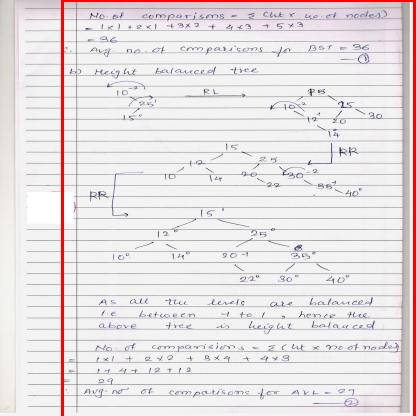 No. of comparisons = Σ (ht × no. of nodes)
= 1×1 + 2×1 + 3×2 + 4×3 + 5×3
= 36
∴ Avg no. of comparisons for BST = 36
①
b) Height balanced tree
10⁻² RL 15 25
25¹ 10⁻² 30
15⁰ 12¹ 20
14
RR
15
12 25
10 14 20 30⁻²
22 35¹
40⁰
RR
15⁰
12⁰ 25⁰
10⁰ 14⁰ 20⁻¹ 35⁰
22⁰ 30⁰ 40⁰
As all the levels are balanced
i.e between -1 to 1, hence the
above tree is height balanced
No. of comparisions = Σ (ht × no of nodes)
= 1×1 + 2×2 + 3×4 + 4×3
= 1+4+12+12
= 29
∴ Avg. no of comparisons for AVL = 29
②